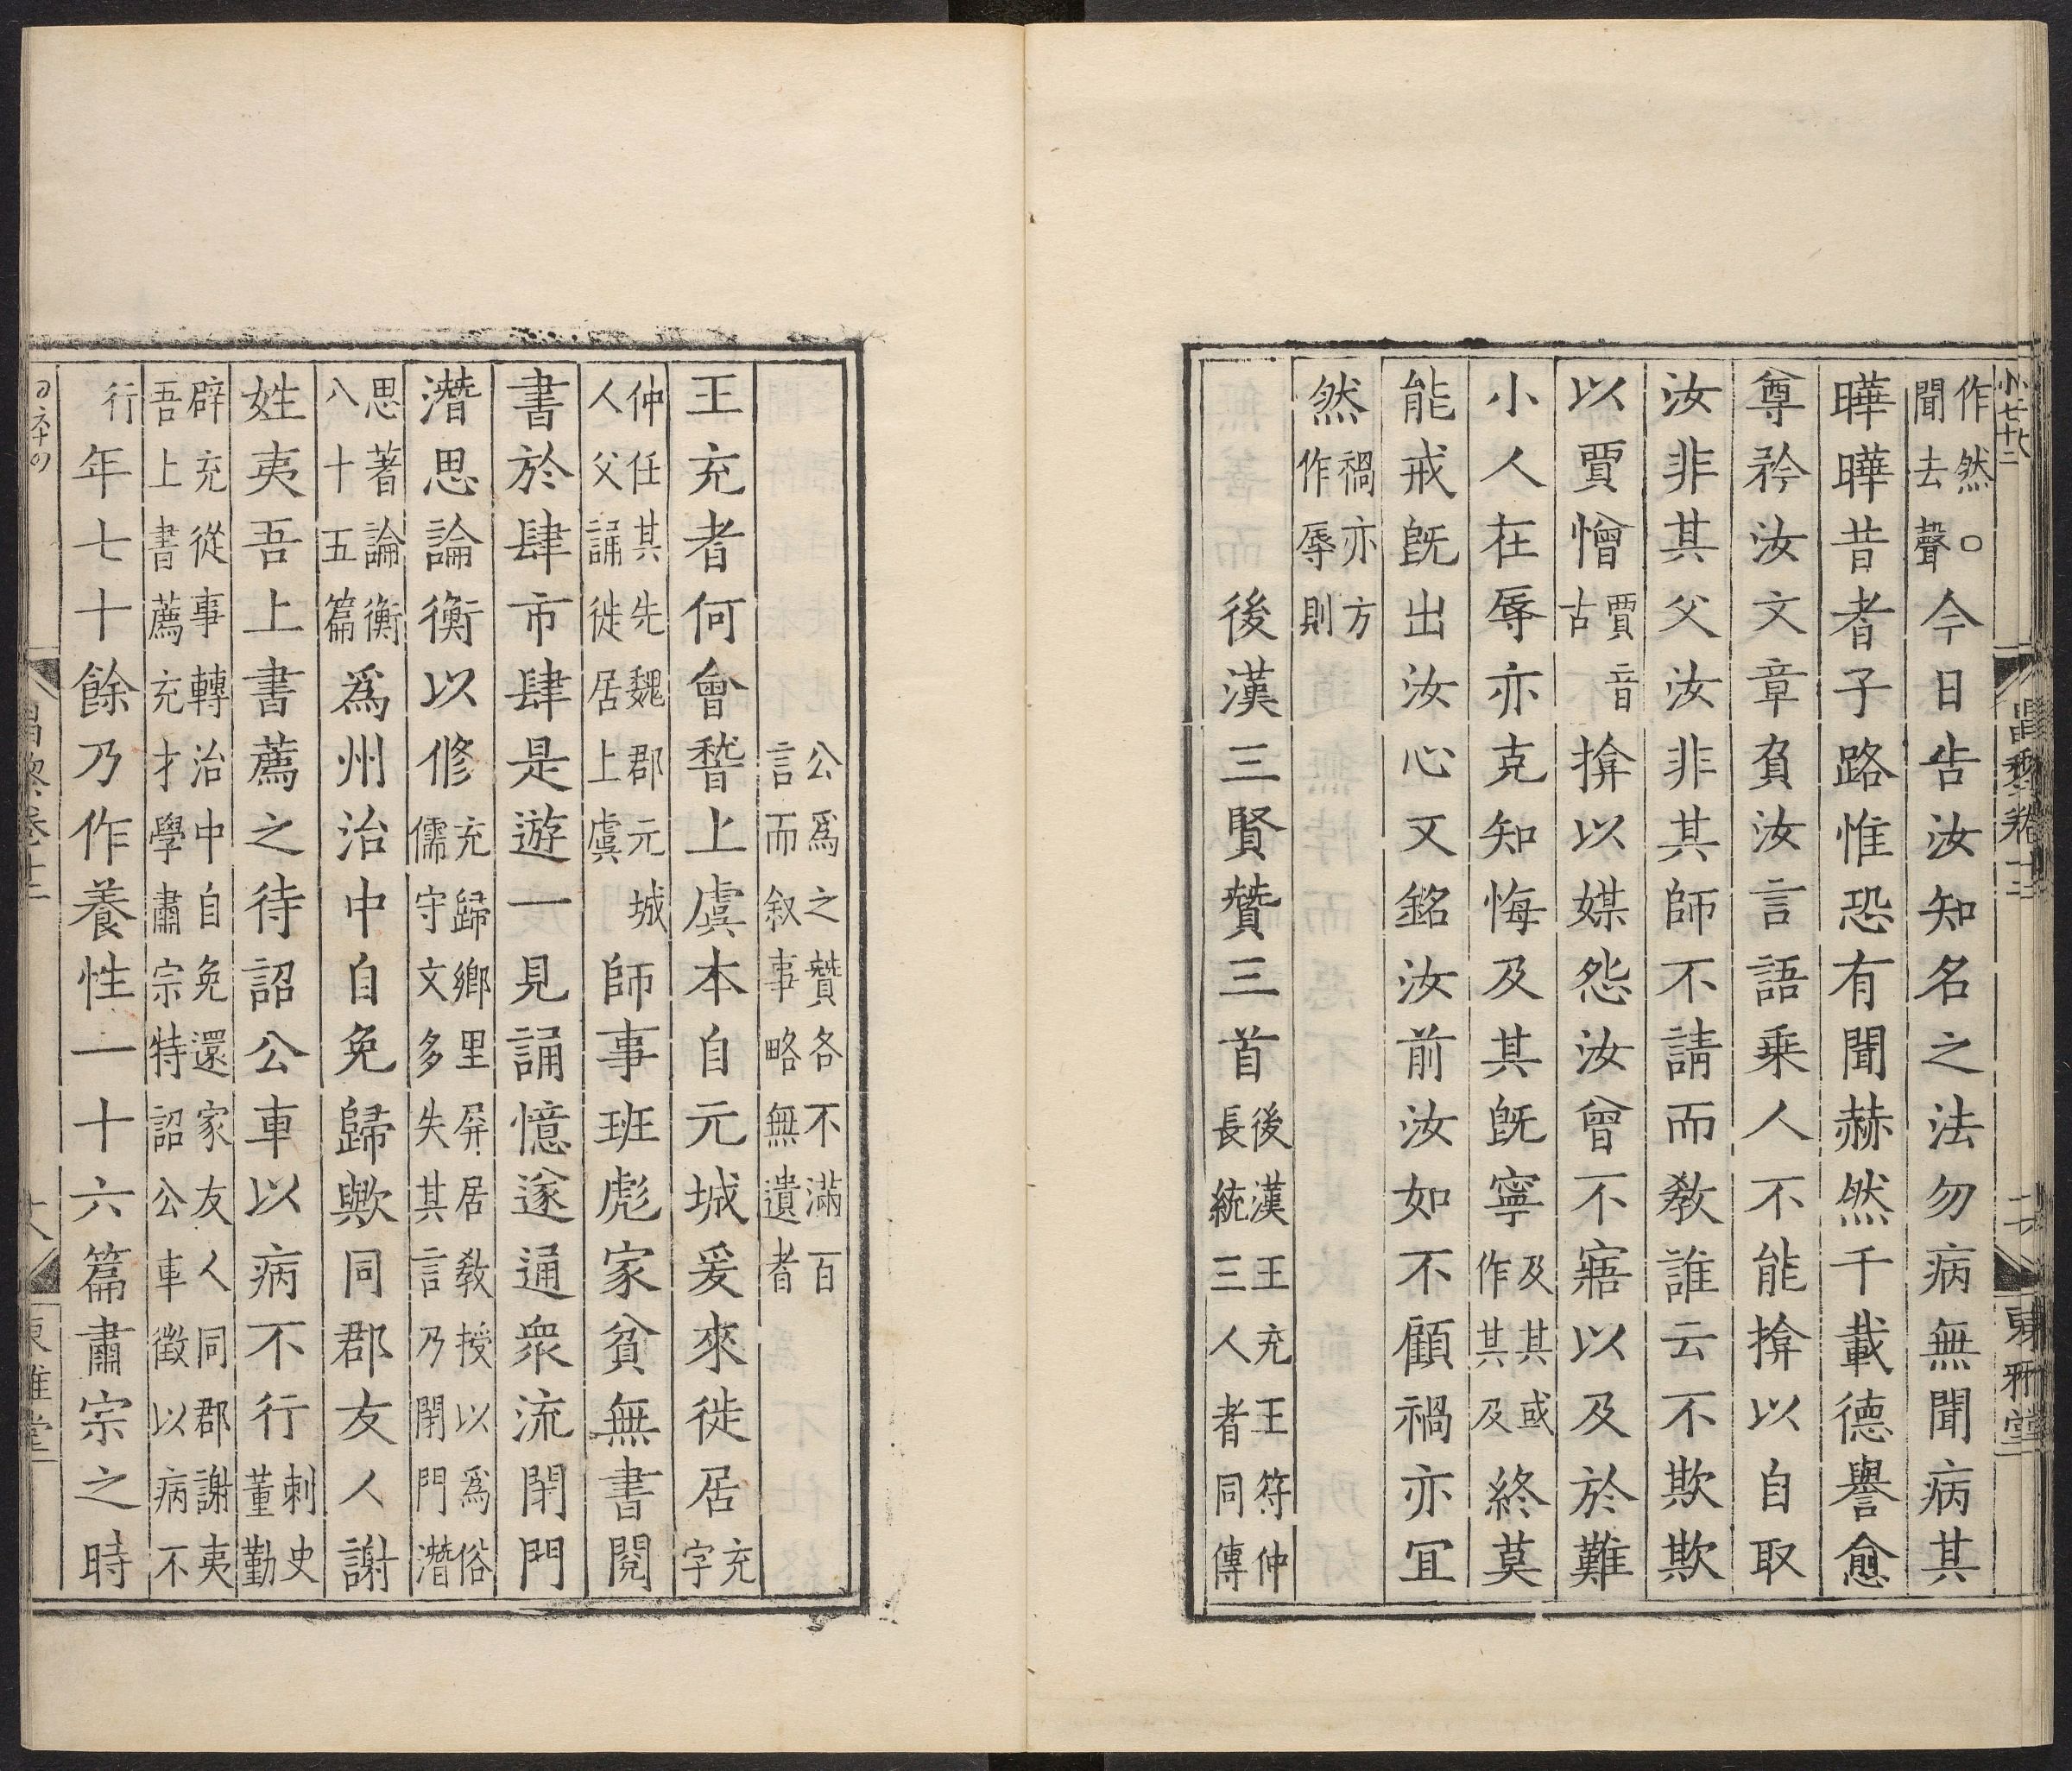 昌黎卷十二
東雅堂
作然○聞去聲今日告汝知名之法勿病無聞病其
曄曄昔者子路惟恐有聞赫然千載德譽愈
尊矜汝文章負汝言語乗人不能揜以自取
汝非其父汝非其師不請而敎誰云不欺欺
以賈憎賈音古揜以媒怨汝曾不寤以及於難
小人在辱亦克知悔及其旣寧及其或作其及終莫
能戒旣出汝心又銘汝前汝如不顧禍亦宜
然禍亦方作辱則
後漢三賢贊三首後漢王充王符仲長統三人者同傳
公爲之贊各不滿百言而叙事略無遺者
王充者何會稽上虞本自元城爰來徙居充字
仲任其先魏郡元城人父誦徙居上虞師事班彪家貧無書閱
書於肆市肆是遊一見誦憶遂通衆流閉門
潛思論衡以修充歸鄉里屏居敎授以爲俗儒守文多失其言乃閉門潛
思著論衡八十五篇爲州治中自免歸歟同郡友人謝
姓夷吾上書薦之待詔公車以病不行刺史董勤
辟充從事轉治中自免還家友人同郡謝夷吾上書薦充才學肅宗特詔公車徵以病不
行年七十餘乃作養性一十六篇肅宗之時